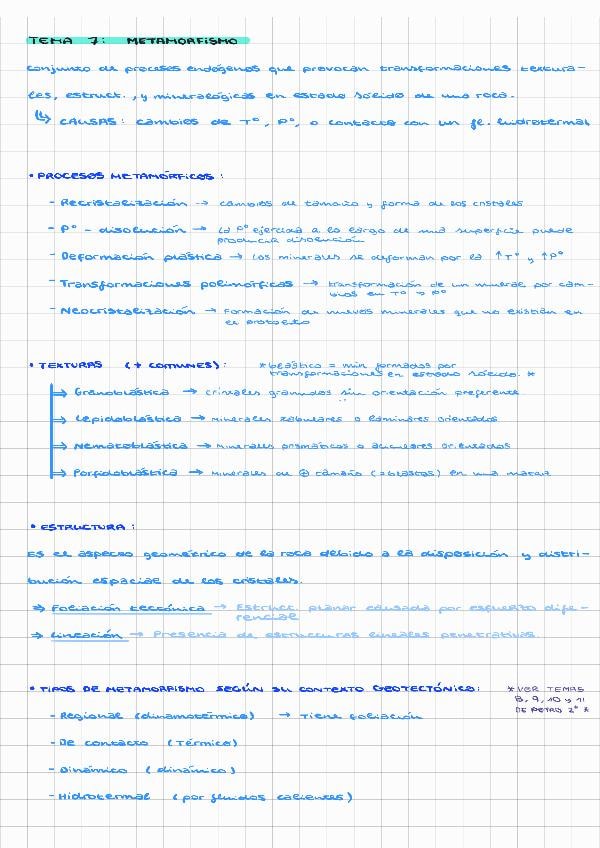 TEMA 7: METAMORFISMO
conjunto de procesos endógenos que provocan transformaciones textura-
les, estruct., y mineralógicas en estado sólido de una roca.
↳ CAUSAS: cambios de Tº, Pº, o contacto con un fl. hidrotermal
• PROCESOS METAMÓRFICOS:
- Recristalización → cambios de tamaño y forma de los cristales
- Pº - disolución → La Pº ejercida a lo largo de una superficie puede
producir disolución
- Deformación plástica → Los minerales se deforman por la ↑Tº y ↑Pº
- Transformaciones polimórficas → transformación de un mineral por cam-
bios en Tº → Pº
- Neocristalización → Formación de nuevos minerales que no existían en
el protolito
• TEXTURAS (+ COMUNES): *blástico = min. formados por
transformaciones en estado sólido. *
⇒ Granoblástica → cristales granudos sin orientación preferente.
⇒ Lepidoblástica → Minerales tabulares o laminares orientados
⇒ Nematoblástica → Minerales prismáticos o aciculares orientados
⇒ Porfidoblástica → Minerales de ⊕ tamaño (=blastos) en una matriz
• ESTRUCTURA:
Es el aspecto geométrico de la roca debido a la disposición y distri-
bución espacial de los cristales.
⇒ Foliación tectónica → Estruct. planar causada por esfuerzo dife-
rencial
⇒ Lineación → Presencia de estructuras lineales penetrativas.
• TIPOS DE METAMORFISMO SEGÚN SU CONTEXTO GEOTECTÓNICO: *VER TEMAS
8, 9, 10 y 11
DE PETRO 2º *
- Regional (dinamotérmico) → Tiene foliación
- De contacto (Térmico)
- Dinámico (dinámico)
- Hidrotermal (por fluidos calientes)